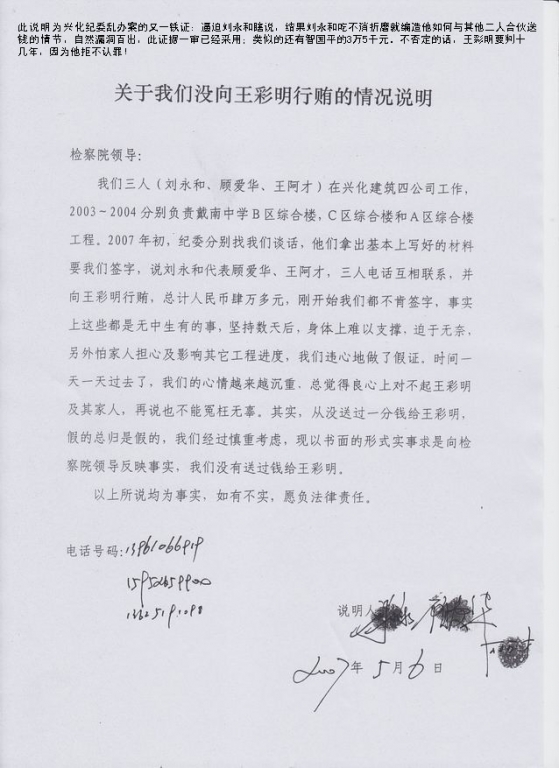 此说明为兴化纪委乱办案的又一铁证：逼迫刘永和瞎说，结果刘永和吃不消折磨就编造他如何与其他二人合伙送
钱的情节，自然漏洞百出，此证据一审已经采用；类似的还有智国平的3万5千元。不否定的话，王彩明要判十
几年，因为他拒不认罪！
关于我们没向王彩明行贿的情况说明
检察院领导：
我们三人（刘永和、顾爱华、王阿才）在兴化建筑四公司工作，
2003～2004 分别负责戴南中学B区综合楼，C区综合楼和A区综合楼
工程。2007 年初，纪委分别找我们谈话，他们拿出基本上写好的材料
要我们签字，说刘永和代表顾爱华、王阿才，三人电话互相联系，并
向王彩明行贿，总计人民币肆万多元，刚开始我们都不肯签字，事实
上这些都是无中生有的事，坚持数天后，身体上难以支撑，迫于无奈，
另外怕家人担心及影响其它工程进度，我们违心地做了假证。时间一
天一天过去了，我们的心情越来越沉重，总觉得良心上对不起王彩明
及其家人，再说也不能冤枉无辜。其实，从没送过一分钱给王彩明，
假的总归是假的，我们经过慎重考虑，现以书面的形式实事求是向检
察院领导反映事实，我们没有送过钱给王彩明。
以上所说均为事实，如有不实，愿负法律责任。
电话号码：13961066919
说明人
2007年 5月 6日